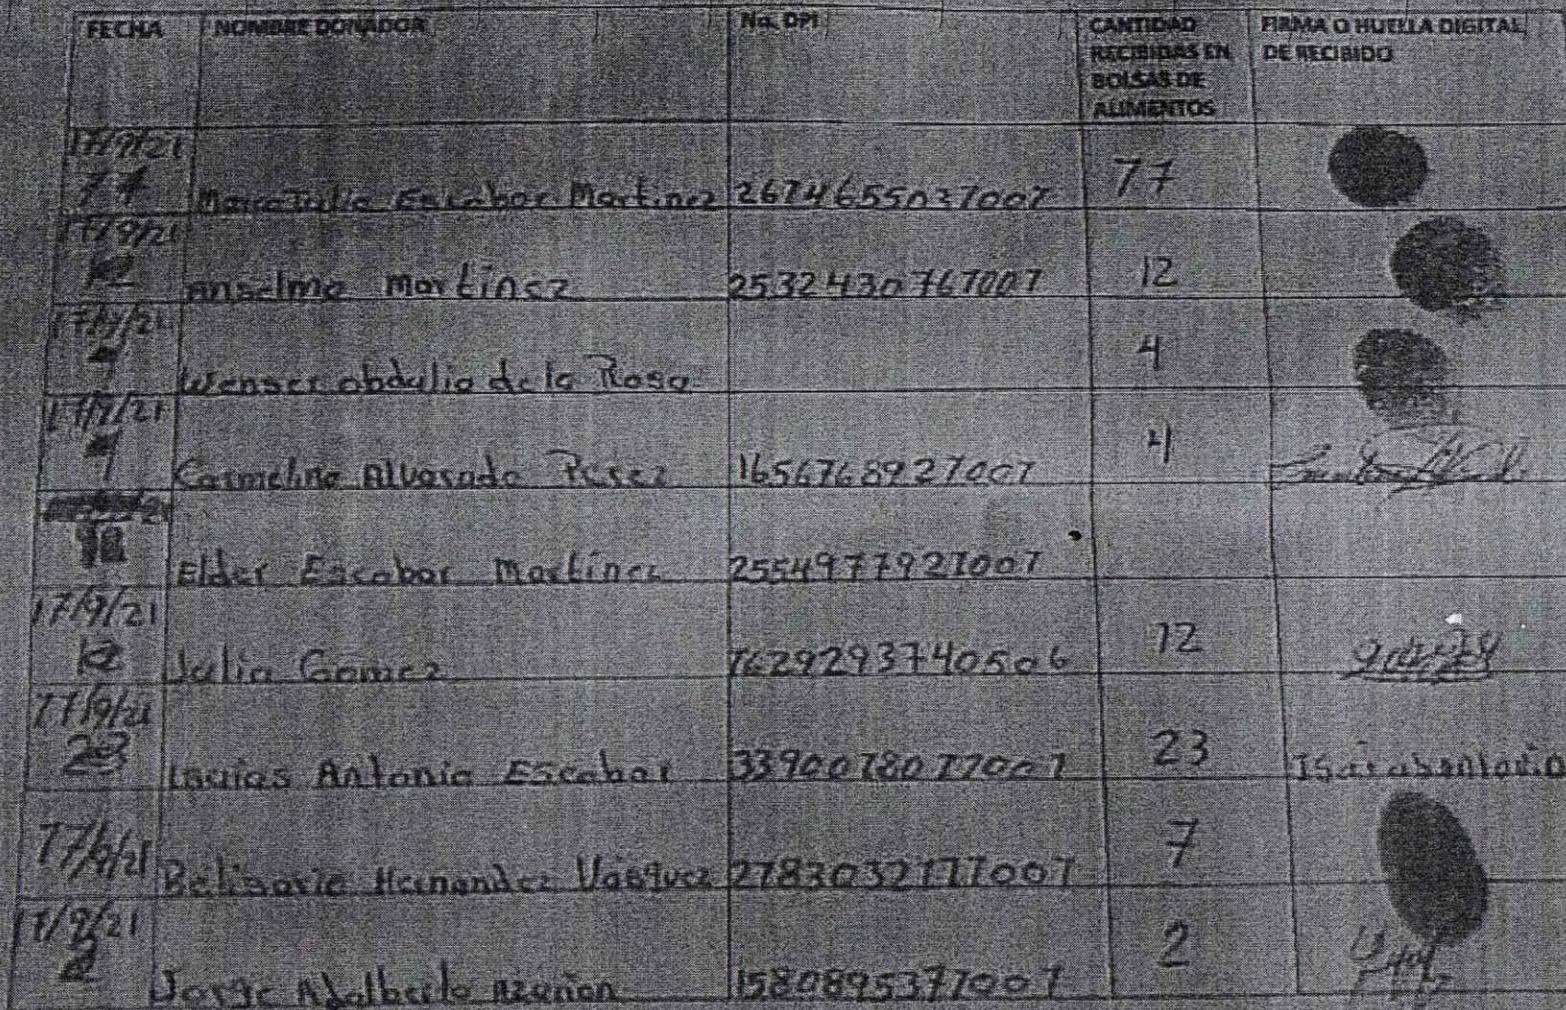 FECHA NOMBRE DONADOR No. DPI CANTIDAD RECIBIDAS EN BOLSAS DE ALIMENTOS FIRMA O HUELLA DIGITAL DE RECIBIDO
17/9/21
Escobar Martinez 2674655037007 77
17/9/21
12 Anselmo Martinez 2532430767007 12
17/9/21
4 obdulio de la Rosa 4
17/9/21
4 Alvarado Perez 1656768927007 4
Elder Escobar Martinez 2554977927007
17/9/21
12 Julio Gomez 1629293740506 12
17/9/21
23 Antonio Escobar 3390078077007 23
17/9/21 Belisario Hernandez Vasquez 2783032177007 7
17/9/21
2 Jorge Adalberto 1580895377007 2